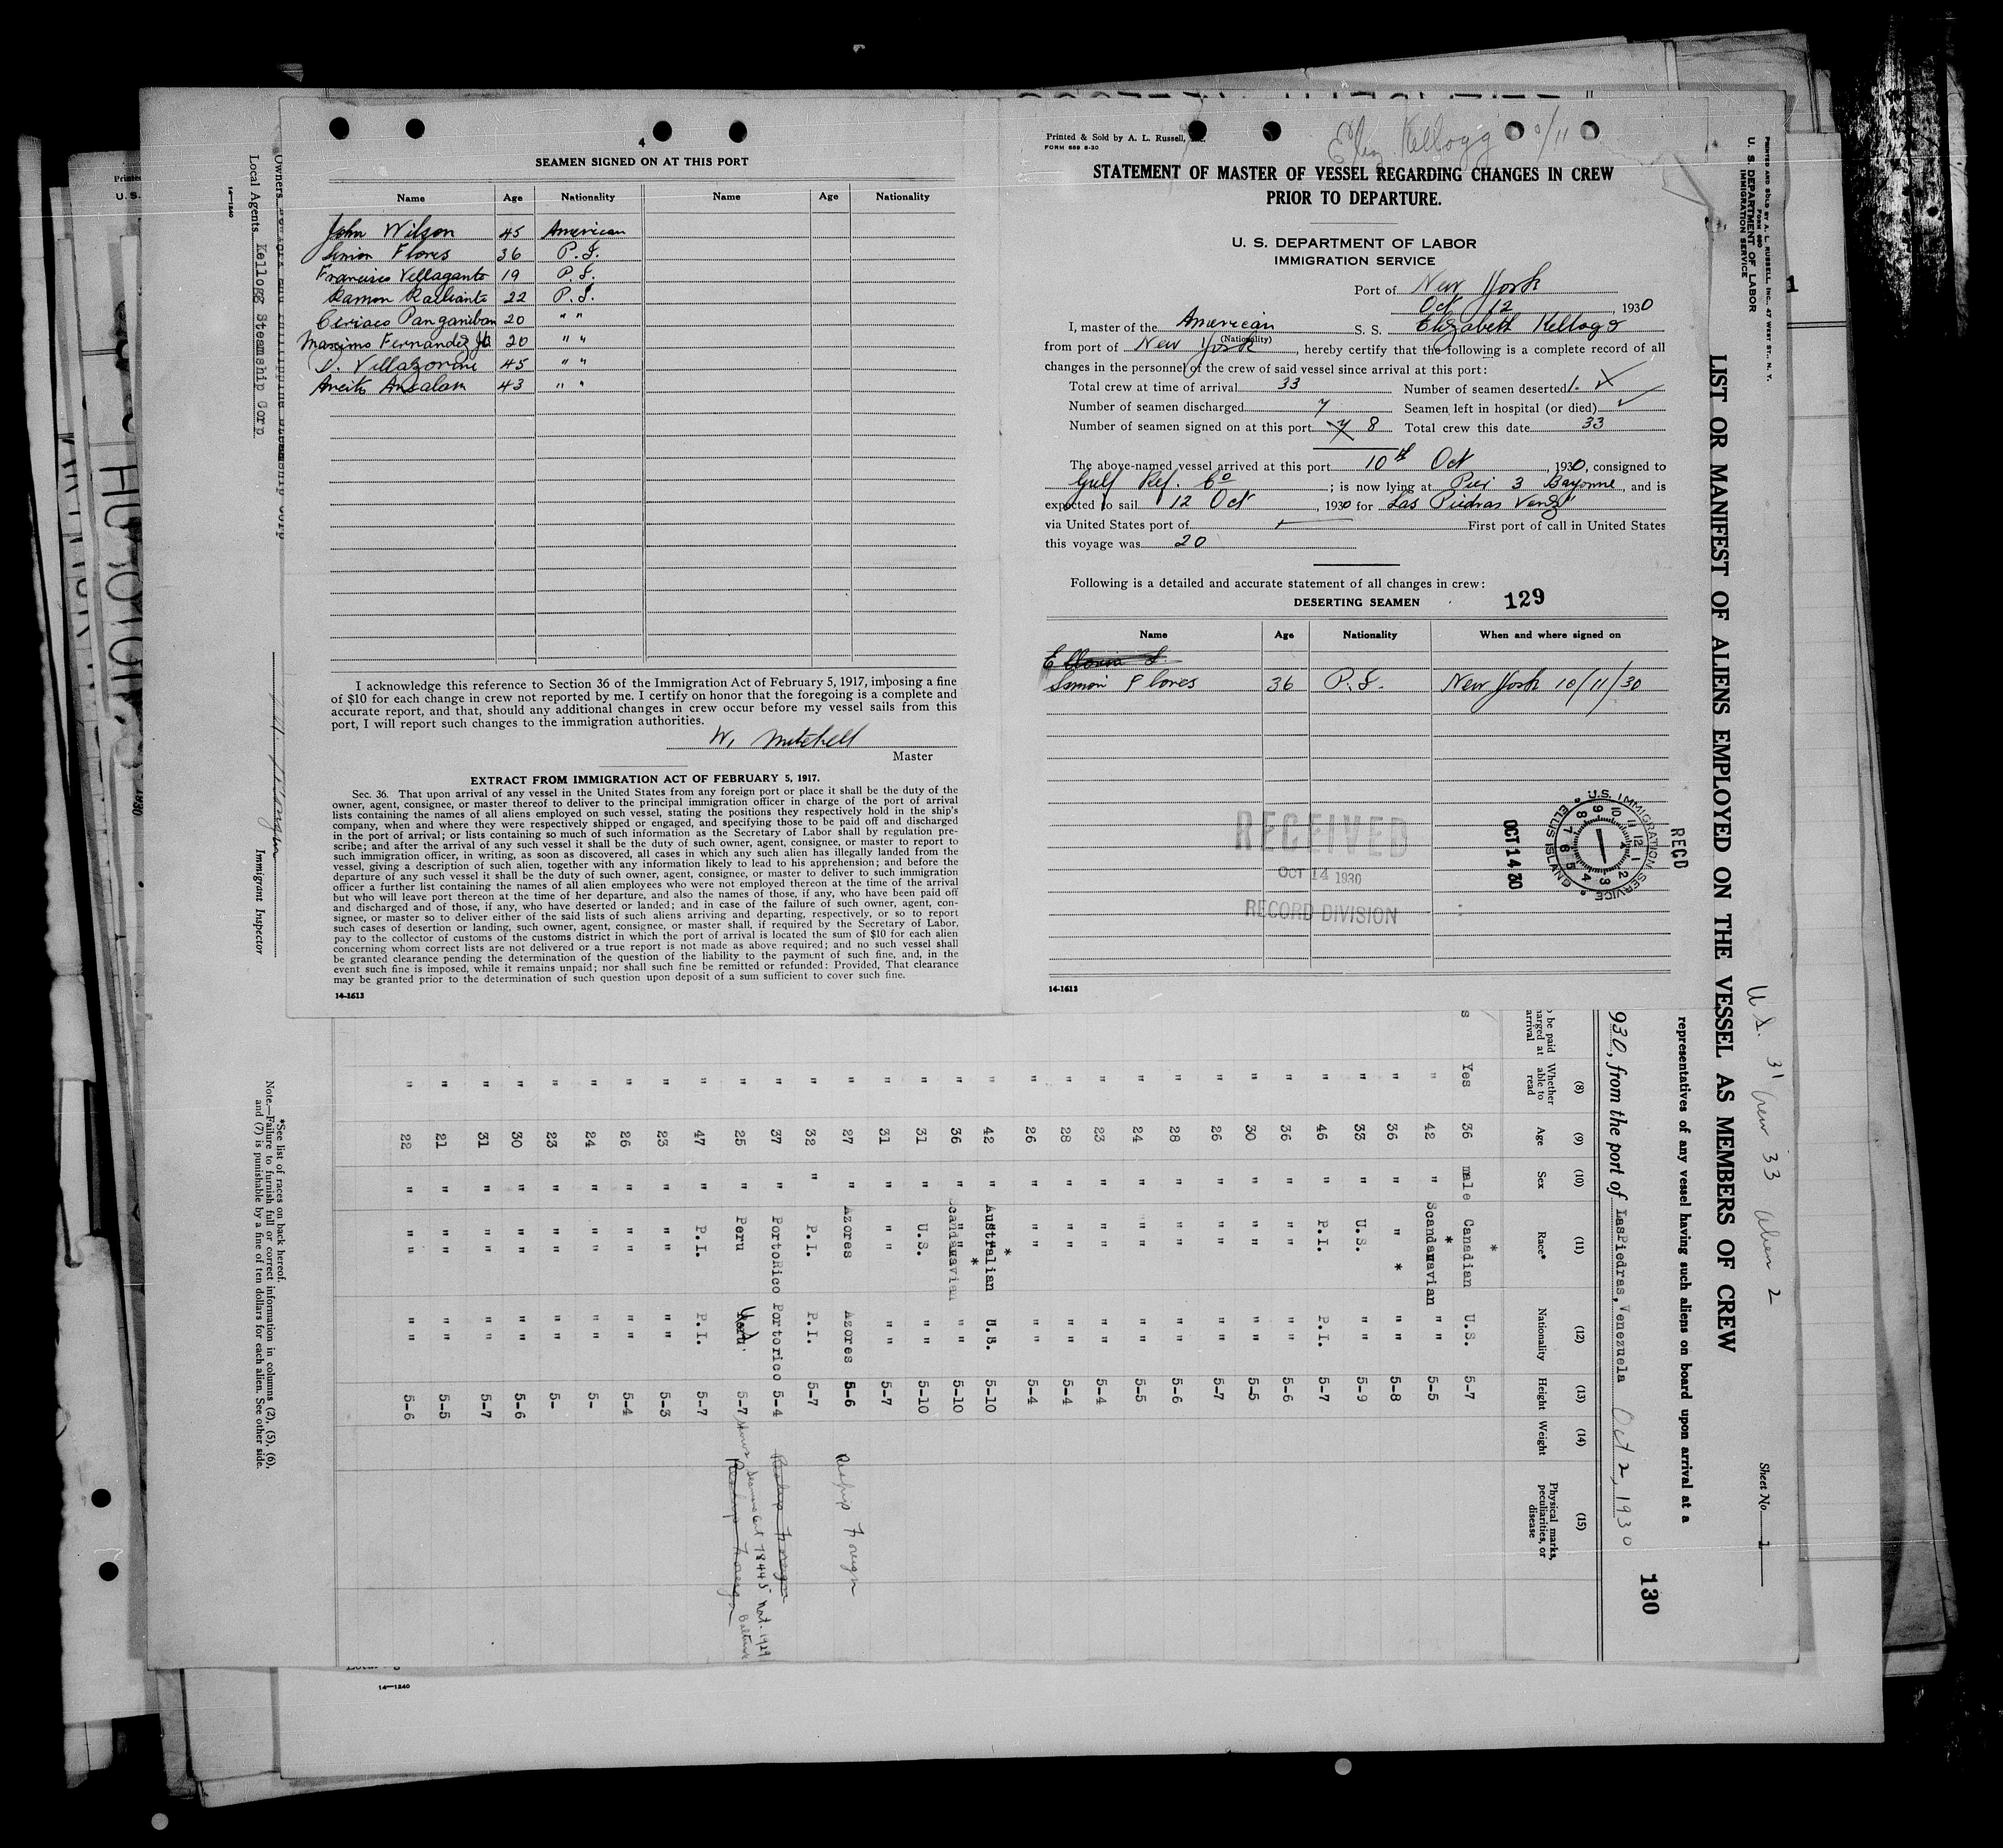 4
SEAMEN SIGNED ON AT THIS PORT
Name Age Nationality Name Age Nationality
John Wilson 45 American
Simon Flores 36 P.I.
Francisco Villagante 19 P.I.
Ramon 22 P.I.
Ceriaco Panganiban 20 " "
Maximo Fernandez Jr 20 " "
45 " "
43 " "
I acknowledge this reference to Section 36 of the Immigration Act of February 5, 1917, imposing a fine
of $10 for each change in crew not reported by me. I certify on honor that the foregoing is a complete and
accurate report, and that, should any additional changes in crew occur before my vessel sails from this
port, I will report such changes to the immigration authorities.
W. Mitchell
Master
EXTRACT FROM IMMIGRATION ACT OF FEBRUARY 5, 1917.
Sec. 36. That upon arrival of any vessel in the United States from any foreign port or place it shall be the duty of the
owner, agent, consignee, or master thereof to deliver to the principal immigration officer in charge of the port of arrival
lists containing the names of all aliens employed on such vessel, stating the positions they respectively hold in the ship's
company, when and where they were respectively shipped or engaged, and specifying those to be paid off and discharged
in the port of arrival; or lists containing so much of such information as the Secretary of Labor shall by regulation pre-
scribe; and after the arrival of any such vessel it shall be the duty of such owner, agent, consignee, or master to report to
such immigration officer, in writing, as soon as discovered, all cases in which any such alien has illegally landed from the
vessel, giving a description of such alien, together with any information likely to lead to his apprehension; and before the
departure of any such vessel it shall be the duty of such owner, agent, consignee, or master to deliver to such immigration
officer a further list containing the names of all alien employees who were not employed thereon at the time of the arrival
but who will leave port thereon at the time of her departure, and also the names of those, if any, who have been paid off
and discharged and of those, if any, who have deserted or landed; and in case of the failure of such owner, agent, con-
signee, or master so to deliver either of the said lists of such aliens arriving and departing, respectively, or so to report
such cases of desertion or landing, such owner, agent, consignee, or master shall, if required by the Secretary of Labor,
pay to the collector of customs of the customs district in which the port of arrival is located the sum of $10 for each alien
concerning whom correct lists are not delivered or a true report is not made as above required; and no such vessel shall
be granted clearance pending the determination of the question of the liability to the payment of such fine, and, in the
event such fine is imposed, while it remains unpaid; nor shall such fine be remitted or refunded: Provided, That clearance
may be granted prior to the determination of such question upon deposit of a sum sufficient to cover such fine.
14-1613
Printed & Sold by A. L. Russell, Inc.
FORM 689 8-30
Eliz Kellogg 10/11
STATEMENT OF MASTER OF VESSEL REGARDING CHANGES IN CREW
PRIOR TO DEPARTURE.
U. S. DEPARTMENT OF LABOR
IMMIGRATION SERVICE
Port of New York
Oct 12, 1930
I, master of the American S. S. Elizabeth Kellogg
(Nationality)
from port of New York, hereby certify that the following is a complete record of all
changes in the personnel of the crew of said vessel since arrival at this port:
Total crew at time of arrival 33 Number of seamen deserted 1.
Number of seamen discharged 7 Seamen left in hospital (or died)
Number of seamen signed on at this port 7 8 Total crew this date 33
The above-named vessel arrived at this port 10th Oct, 1930, consigned to
Gulf Ref. Co; is now lying at Pier 3 Bayonne, and is
expected to sail 12 Oct, 1930 for Las Piedras Venz
via United States port of First port of call in United States
this voyage was 20
Following is a detailed and accurate statement of all changes in crew:
DESERTING SEAMEN 129
Name Age Nationality When and where signed on
Simon Flores 36 P.I. New York 10/11/30
RECEIVED
OCT 14 1930
RECORD DIVISION
RECD
U.S. IMMIGRATION SERVICE
ELLIS ISLAND
OCT 14 30
14-1613
PRINTED AND SOLD BY A. L. RUSSELL, INC., 47 WEST ST., N. Y.
FORM 680
U. S. DEPARTMENT OF LABOR
IMMIGRATION SERVICE
LIST OR MANIFEST OF ALIENS EMPLOYED ON THE VESSEL AS MEMBERS OF CREW
U.S. 31 Crew 33 Alien 2
Sheet No. 1
representatives of any vessel having such aliens on board upon arrival at a
930, from the port of LasPiedras, Venezuela Oct 2, 1930
130
(8) (9) (10) (11) (12) (13) (14) (15)
Whether able to read Age Sex Race* Nationality Height Weight Physical marks, peculiarities, or disease
Yes 36 male Canadian U.S. 5-7
" 42 " Scandanavian " " 5-5
" 36 " " * " " 5-8
" 33 " U.S. " " 5-9
" 46 " P.I. P.I. 5-7
" 36 " " " " " 5-6
" 30 " " " " " 5-5
" 26 " " " " " 5-7
" 28 " " " " " 5-6
" 24 " " " " " 5-5
" 23 " " " " " 5-4
" 28 " " " " " 5-4
" 26 " " " " " 5-4
" 42 " Australian U.S. 5-10
" 36 " Scandanavian " " 5-10
" 31 " U.S. " " 5-10
" 31 " " " " " 5-7
" 27 " Azores Azores 5-6 Reship Foreign
" 32 " P.I. P.I. 5-7
" 37 " PortoRico Portorico 5-4 Reship Foreign
" 25 " Peru 5-7 Reship Foreign
" 47 " P.I. P.I. 5-7
" 23 " " " " " 5-3
" 26 " " " " " 5-4
" 24 " " " " " 5-
" 23 " " " " " 5-
" 30 " " " " " 5-6
" 31 " " " " " 5-7
" 21 " " " " " 5-5
" 22 " " " " " 5-6
Local Agents Kellogg Steamship Corp
Immigrant Inspector
*See list of races on back hereof.
Note.—Failure to furnish full or correct information in columns (2), (5), (6),
and (7) is punishable by a fine of ten dollars for each alien. See other side.
14—1240
14—1240